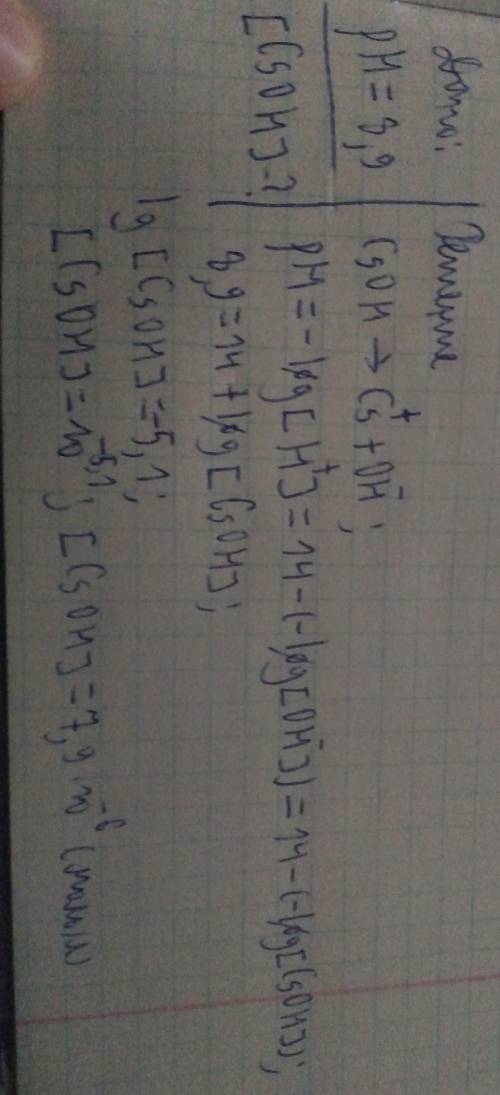 Дано:
pH = 8,9
[CsOH] - ?
Решение
CsOH → Cs⁺ + OH⁻;
pH = -lg[H⁺] = 14 - (-lg[OH⁻]) = 14 - (-lg[CsOH]);
8,9 = 14 + lg[CsOH];
lg[CsOH] = -5,1;
[CsOH] = 10⁻⁵,¹; [CsOH] = 7,9·10⁻⁶ (моль/л)